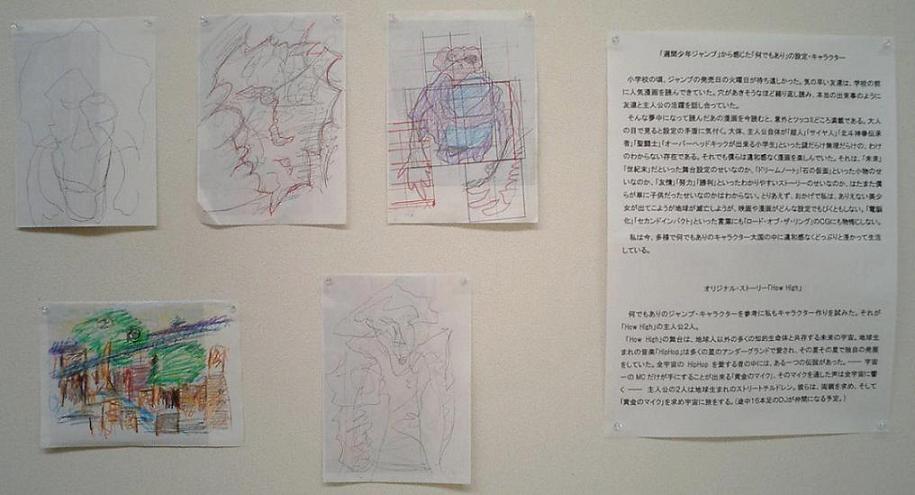 「週間少年ジャンプ」から感じた「何でもあり」の設定・キャラクター
小学校の頃、ジャンプの発売日の火曜日が待ち遠しかった。気の早い友達は、学校の前
に人気漫画を読んできていた。穴があきそうなほど繰り返し読み、本当の出来事のように
友達と主人公の活躍を話し合っていた。
そんな夢中になって読んだあの漫画を今読むと、意外とツッコミどころ満載である。大人
の目で見ると設定の矛盾に気付く。大体、主人公自体が「超人」「サイヤ人」「北斗神拳伝承
者」「聖闘士」「オーバーヘッドキックが出来る小学生」といった謎だらけ無理だらけの、わけ
のわからない存在である。それでも僕らは違和感なく漫画を楽しんでいた。それは、「未来」
「世紀末」だといった舞台設定のせいなのか、「ドリームノート」「石の仮面」といった小物のせ
いなのか、「友情」「努力」「勝利」といったわかりやすいストーリーのせいなのか、はたまた僕
らが単に子供だったせいなのかはわからない。とりあえず、おかげで私は、ありえない美少
女が出てこようが地球が滅亡しようが、映画や漫画がどんな設定でもびくともしない。「電脳
化」「セカンドインパクト」といった言葉にも「ロード・オブ・ザ・リング」のCGにも物怖じしない。
私は今、多種で何でもありのキャラクター大国の中に違和感なくどっぷりと浸かって生活
している。
オリジナル・ストーリー「How High」
何でもありのジャンプ・キャラクターを参考に私もキャラクター作りを試みた。それが
「How High」の主人公2人。
「How High」の舞台は、地球人以外の多くの知的生命体と共存する未来の宇宙。地球生
まれの音楽「HipHop」は多くの星のアンダーグランドで愛され、その星その星で独自の発展
をしていた。全宇宙の HipHop を愛する者の中には、ある一つの伝説があった。―― 宇宙
一の MC だけが手にすることが出来る「黄金のマイク」、そのマイクを通した声は全宇宙に響
く ―― 主人公の2人は地球生まれのストリートチルドレン。彼らは、両親を求め、そして
「黄金のマイク」を求め宇宙に旅をする。(途中16本足のDJが仲間になる予定。)